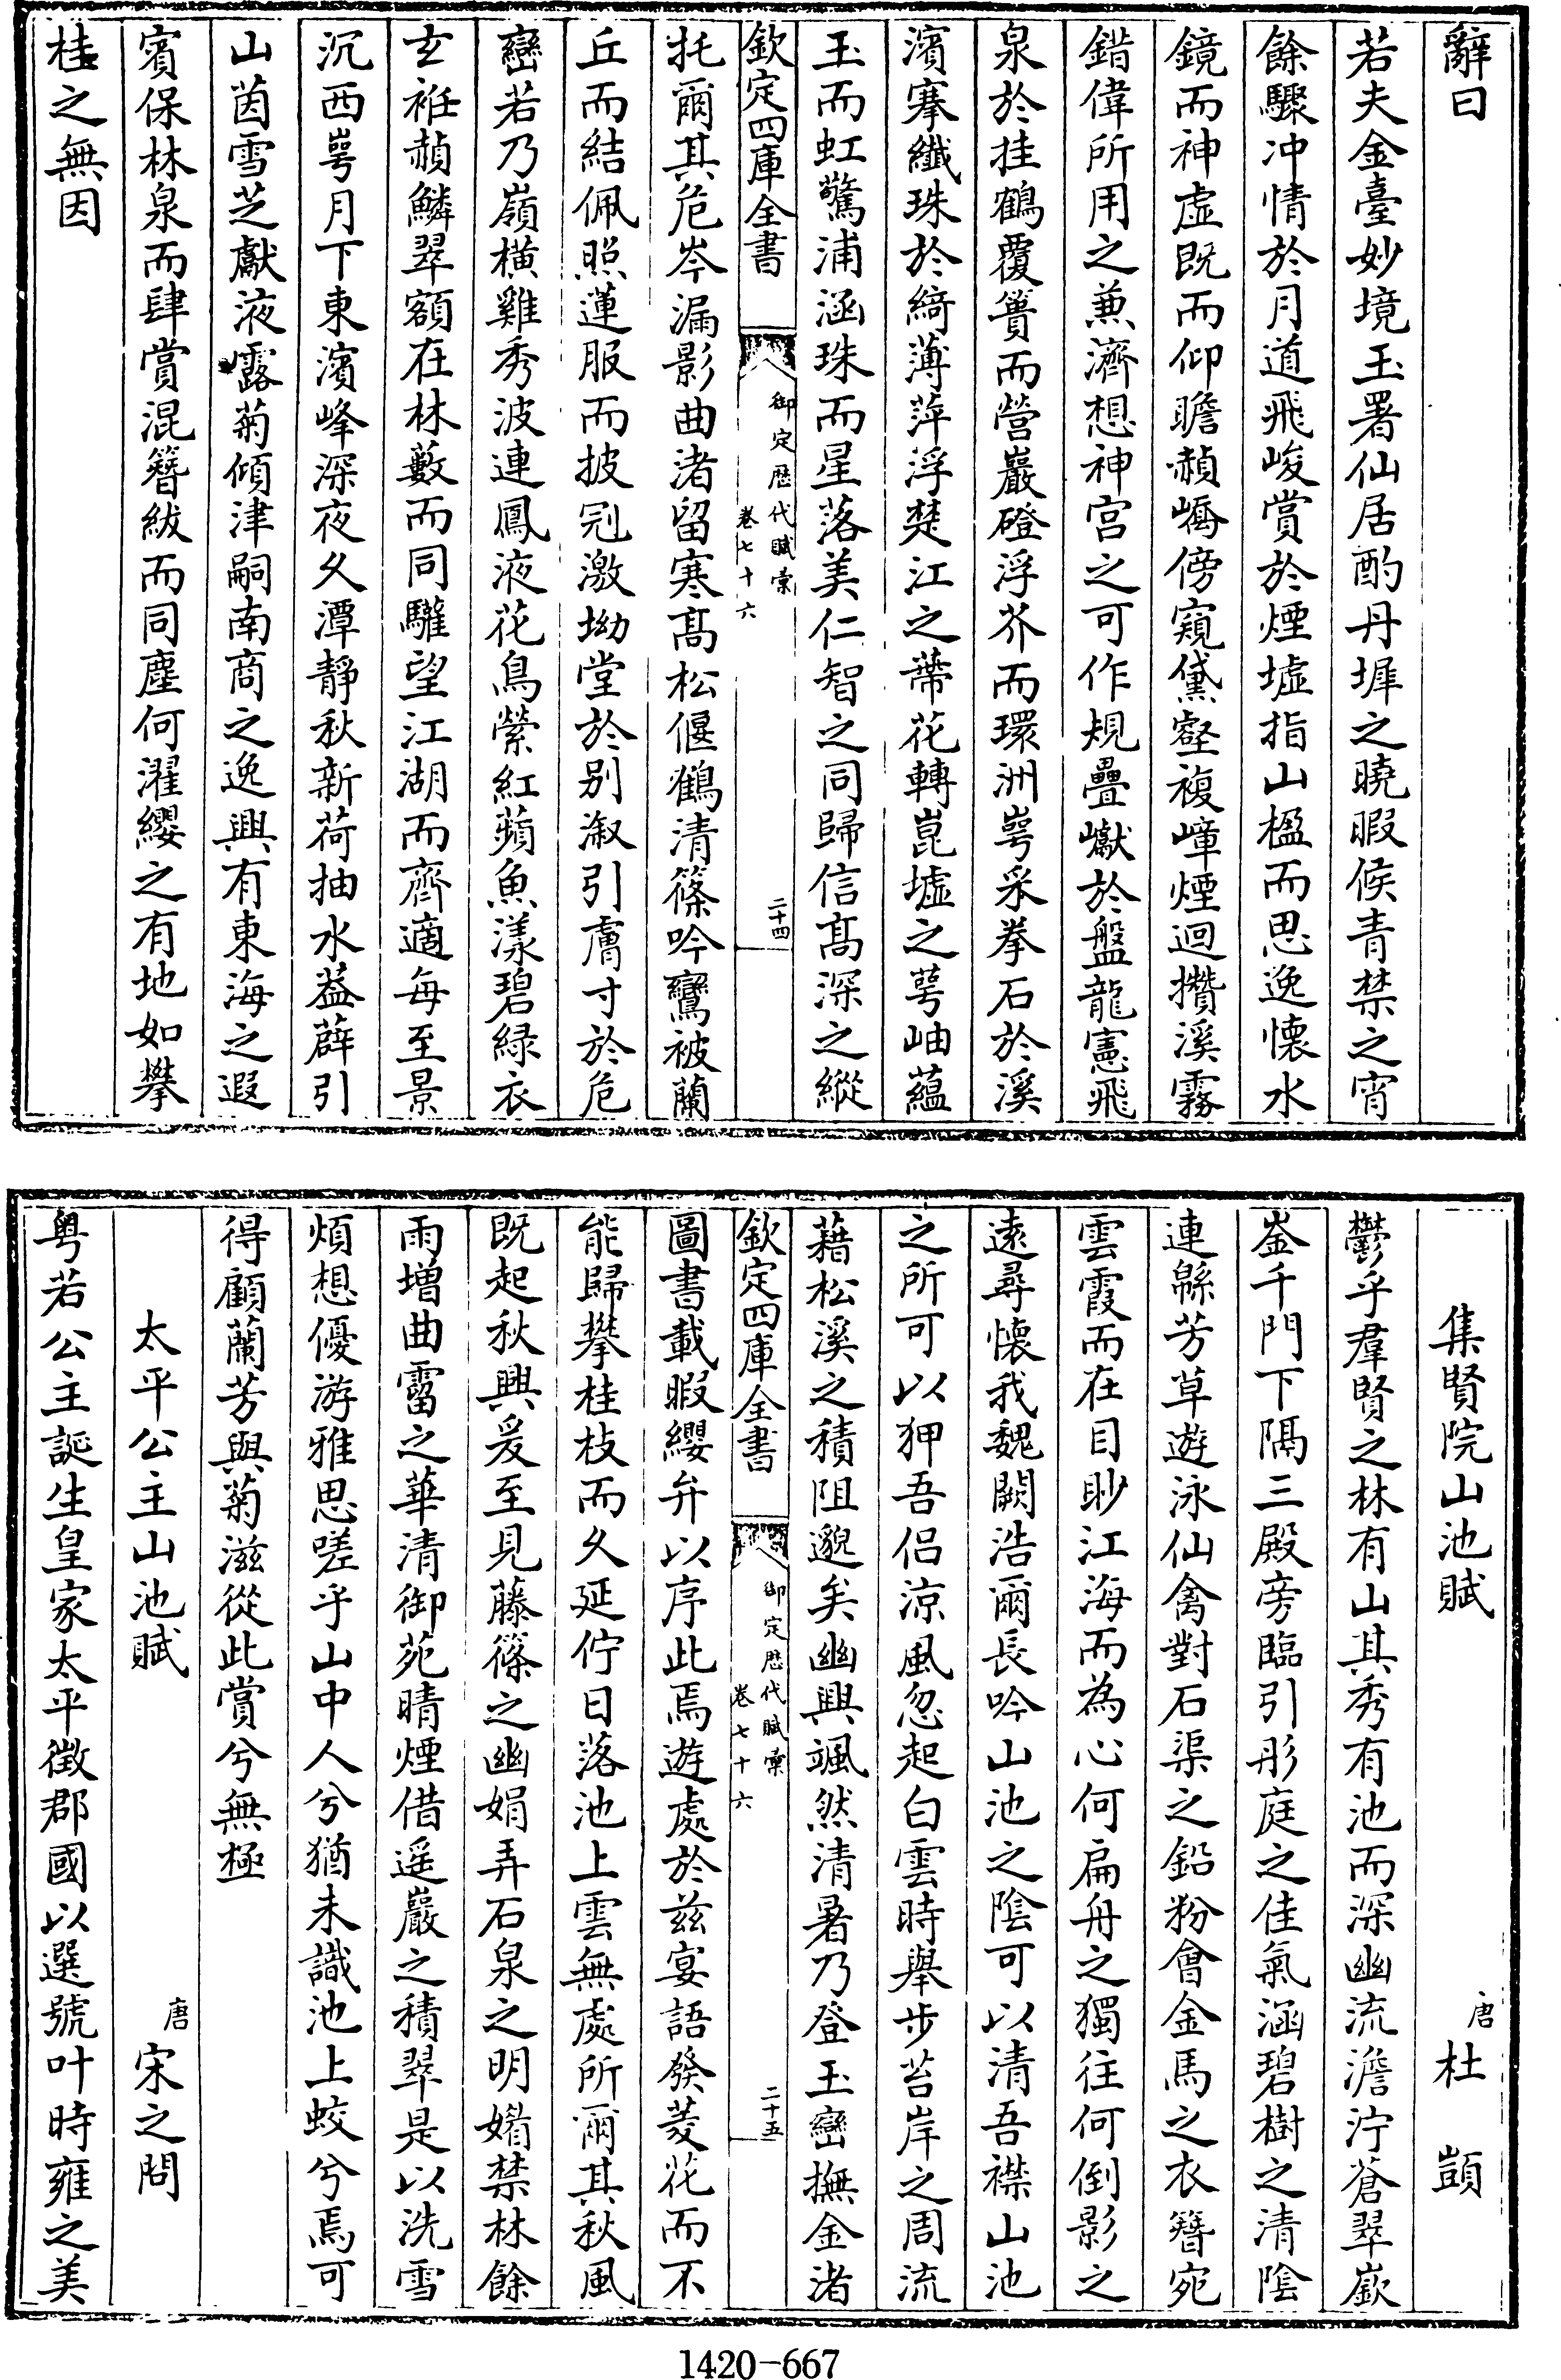 辭曰
若夫金臺妙境玉署仙居酌丹墀之曉暇候青禁之宵
餘驟冲情於月道飛峻賞於煙墟指山楹而思逸懷水
鏡而神虛既而仰瞻赬嶠傍窺黛壑複嶂煙迴攢溪霧
錯偉所用之兼濟想神宫之可作規疊巘於盤龍憲飛
泉於挂鶴覆簣而營巖磴浮芥而環洲崿采拳石於溪
濱搴纖珠於綺薄萍浮楚江之蔕花轉崑墟之萼岫蘊
玉而虹驚浦涵珠而星落美仁智之同歸信髙深之縱
欽定四庫全書
御定歴代賦彙
卷七十六
二十四
托爾其危岑漏影曲渚留寒髙松偃鶴清篠吟鸞被蘭
丘而結佩照蓮服而披冠激坳堂於别溆引膚寸於危
巒若乃嶺横雞秀波連鳳液花鳥縈紅蘋魚漾碧緑衣
玄袵赬鱗翠額在林藪而同驩望江湖而齊適每至景
沉西崿月下東濱峰深夜久潭靜秋新荷抽水葢薜引
山茵雪芝獻液露菊傾津嗣南商之逸興有東海之遐
賓保林泉而肆賞混簪紱而同塵何濯纓之有地如攀
桂之無因
集賢院山池賦
唐 杜顗
鬱乎羣賢之林有山其秀有池而深幽流澹泞蒼翠嶔
崟千門下隔三殿旁臨引彤庭之佳氣涵碧樹之清陰
連緜芳草遊泳仙禽對石渠之鉛粉會金馬之衣簪宛
雲霞而在目眇江海而為心何扁舟之獨往何倒影之
遠尋懷我魏闕浩爾長吟山池之陰可以清吾襟山池
之所可以狎吾侣涼風忽起白雲時舉步苔岸之周流
藉松溪之積阻邈矣幽興颯然清暑乃登玉巒撫金渚
欽定四庫全書
御定歴代賦彙
卷七十六
二十五
圖書載暇纓弁以序此焉遊處於兹宴語發菱花而不
能歸攀桂枝而久延佇日落池上雲無處所爾其秋風
既起秋興爰至見藤篠之幽娟弄石泉之明媚禁林餘
雨增曲霤之華清御苑晴煙借遥巖之積翠是以洗雪
煩想優游雅思嗟乎山中人兮猶未識池上蛟兮焉可
得顧蘭芳與菊滋從此賞兮無極
太平公主山池賦
唐 宋之問
粤若公主誕生皇家太平徴郡國以選號叶時雍之美
1420-667